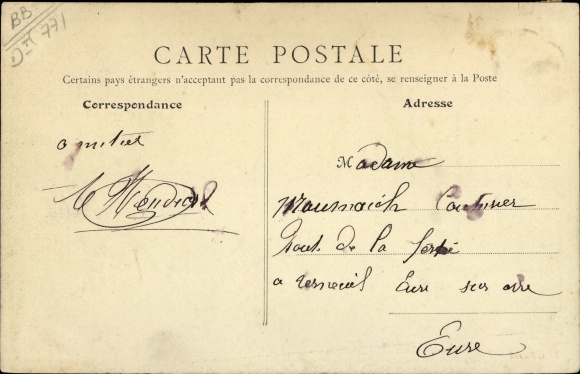 BB
771
CARTE POSTALE
Certains pays étrangers n'acceptant pas la correspondance de ce côté, se renseigner à la Poste
Correspondance
Adresse
amities
Madame
Rout de la ferté
a verneuil Eure sur avre
Eure